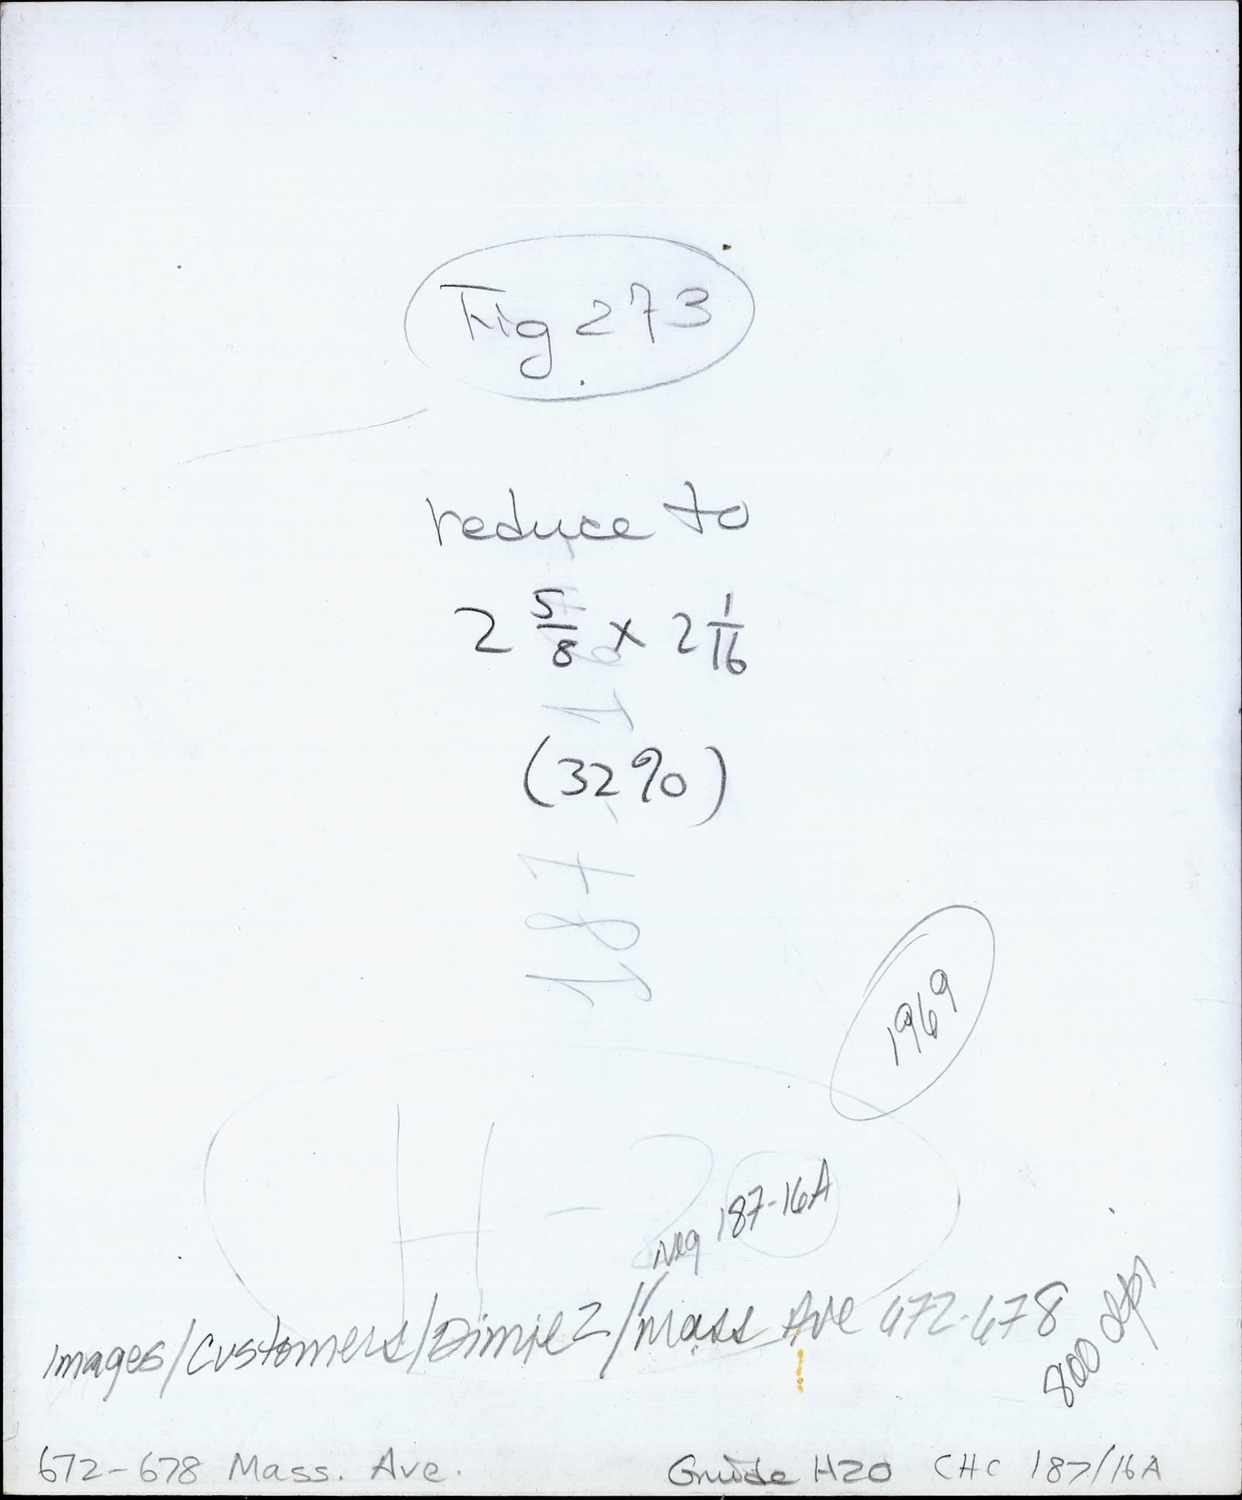 Fig 273
reduce to
2 5/8 x 2 1/16
(32%)
187 16
1969
H-20
Neg 187-16A
Images/Customers/Dimiez/Mass Ave 672-678
800 dpi
672-678 Mass. Ave.
Guide H20 CHC 187/16A